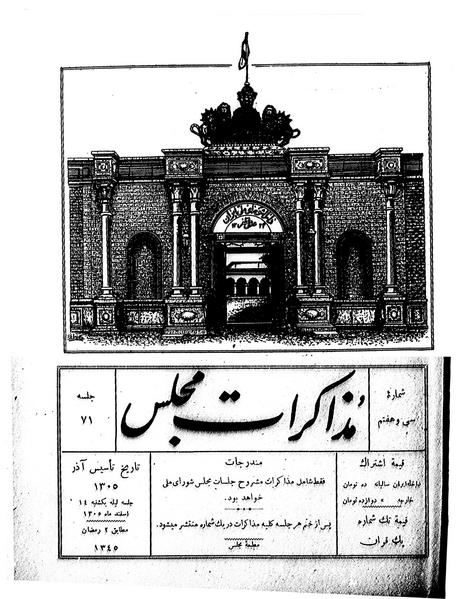 شمارهٔ
سی و هفتم
مذاکرات مجلس
جلسه
۷۱
قیمة اشتراك
داخله ایران سالیانه ده تومان
خارجه » دوازده تومان
قیمة تك شماره
یك قران
مندرجات
فقط شامل مذاکرات مشروح جلسات مجلس شورای ملی
خواهد بود.
پس از ختم هر جلسه کلیه مذاکرات در یك شماره منتشر میشود.
مطبعهٔ مجلس
تاریخ تأسیس آذر
۱۳۰۵
جلسه لیله یکشنبه ۱۴
اسفند ماه ۱۳۰۶
مطابق ۲ رمضان
۱۳۴۵